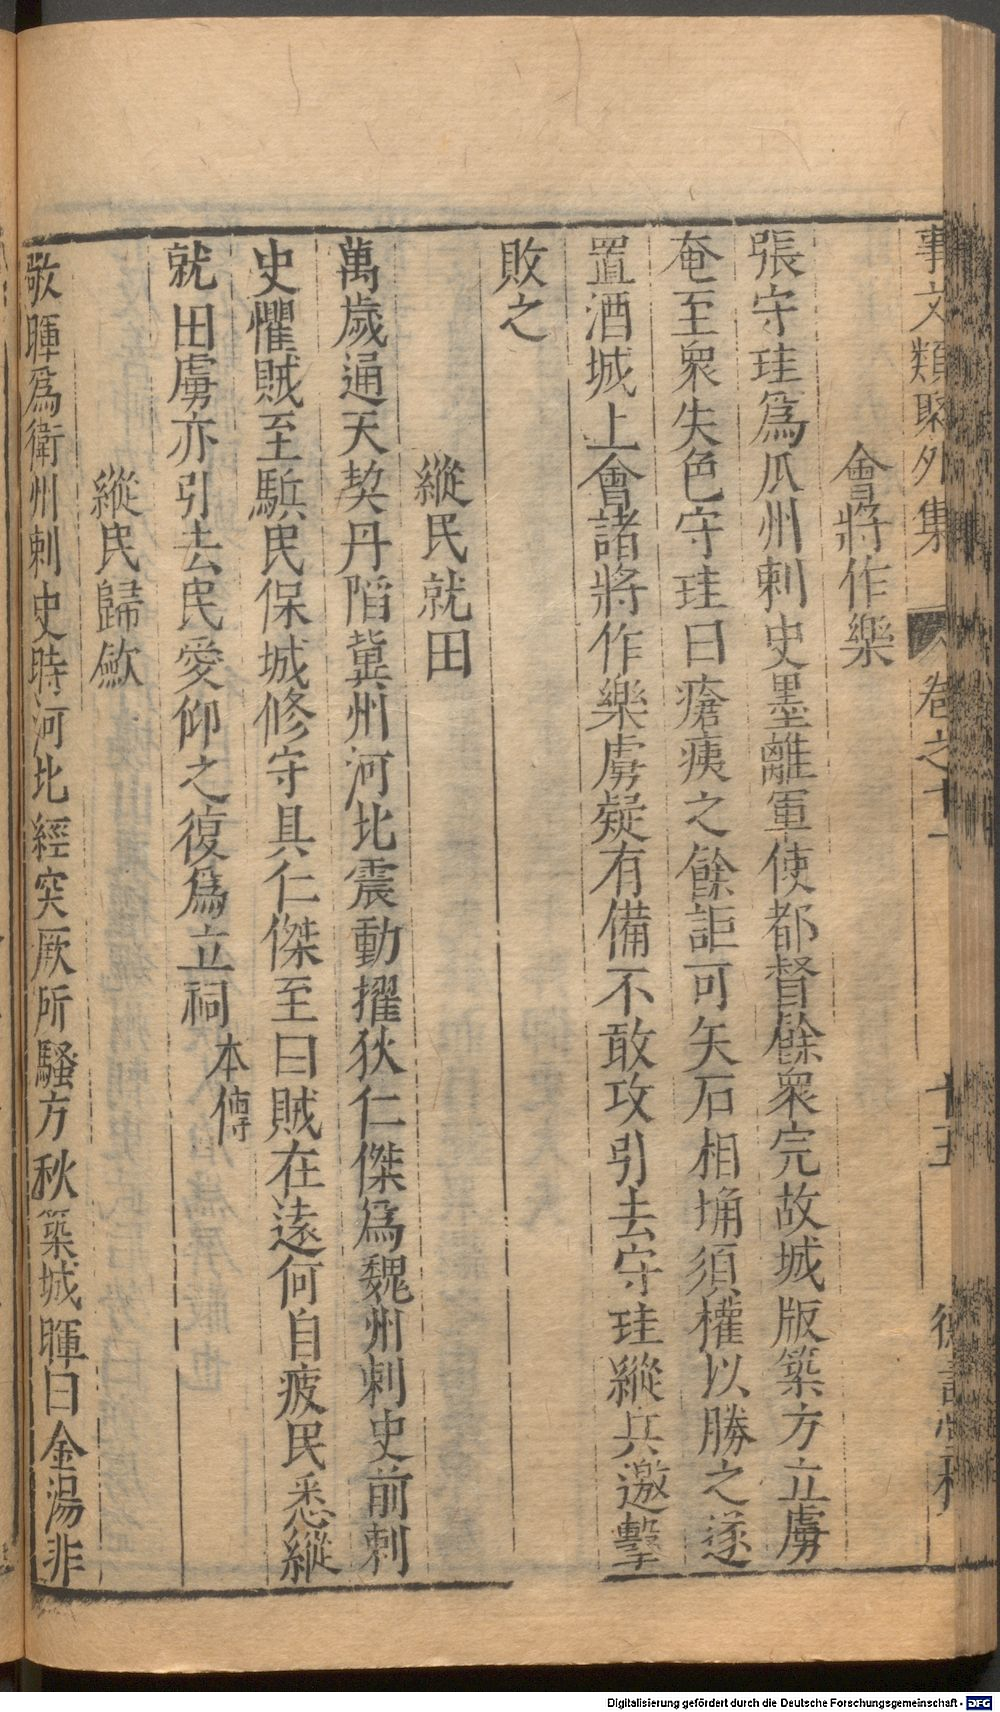 事文類聚外集 卷之十一 十五
會將作樂
張守珪爲瓜州刺史墨離軍使都督餘衆完故城版築方立虜
奄至衆失色守珪曰瘡痍之餘詎可矢石相埇須權以勝之遂
置酒城上會諸將作樂虜疑有備不敢攻引去守珪縱兵邀擊
敗之
縱民就田
萬歲通天契丹陷冀州河北震動擢狄仁傑爲魏州刺史前刺
史懼賊至駈民保城修守具仁傑至曰賊在遠何自疲民悉縱
就田虜亦引去民愛仰之復爲立祠本傳
縱民歸歛
敬暉爲衛州刺史時河北經突厥所騷方秋築城暉曰金湯非
Digitalisierung gefördert durch die Deutsche Forschungsgemeinschaft - DFG